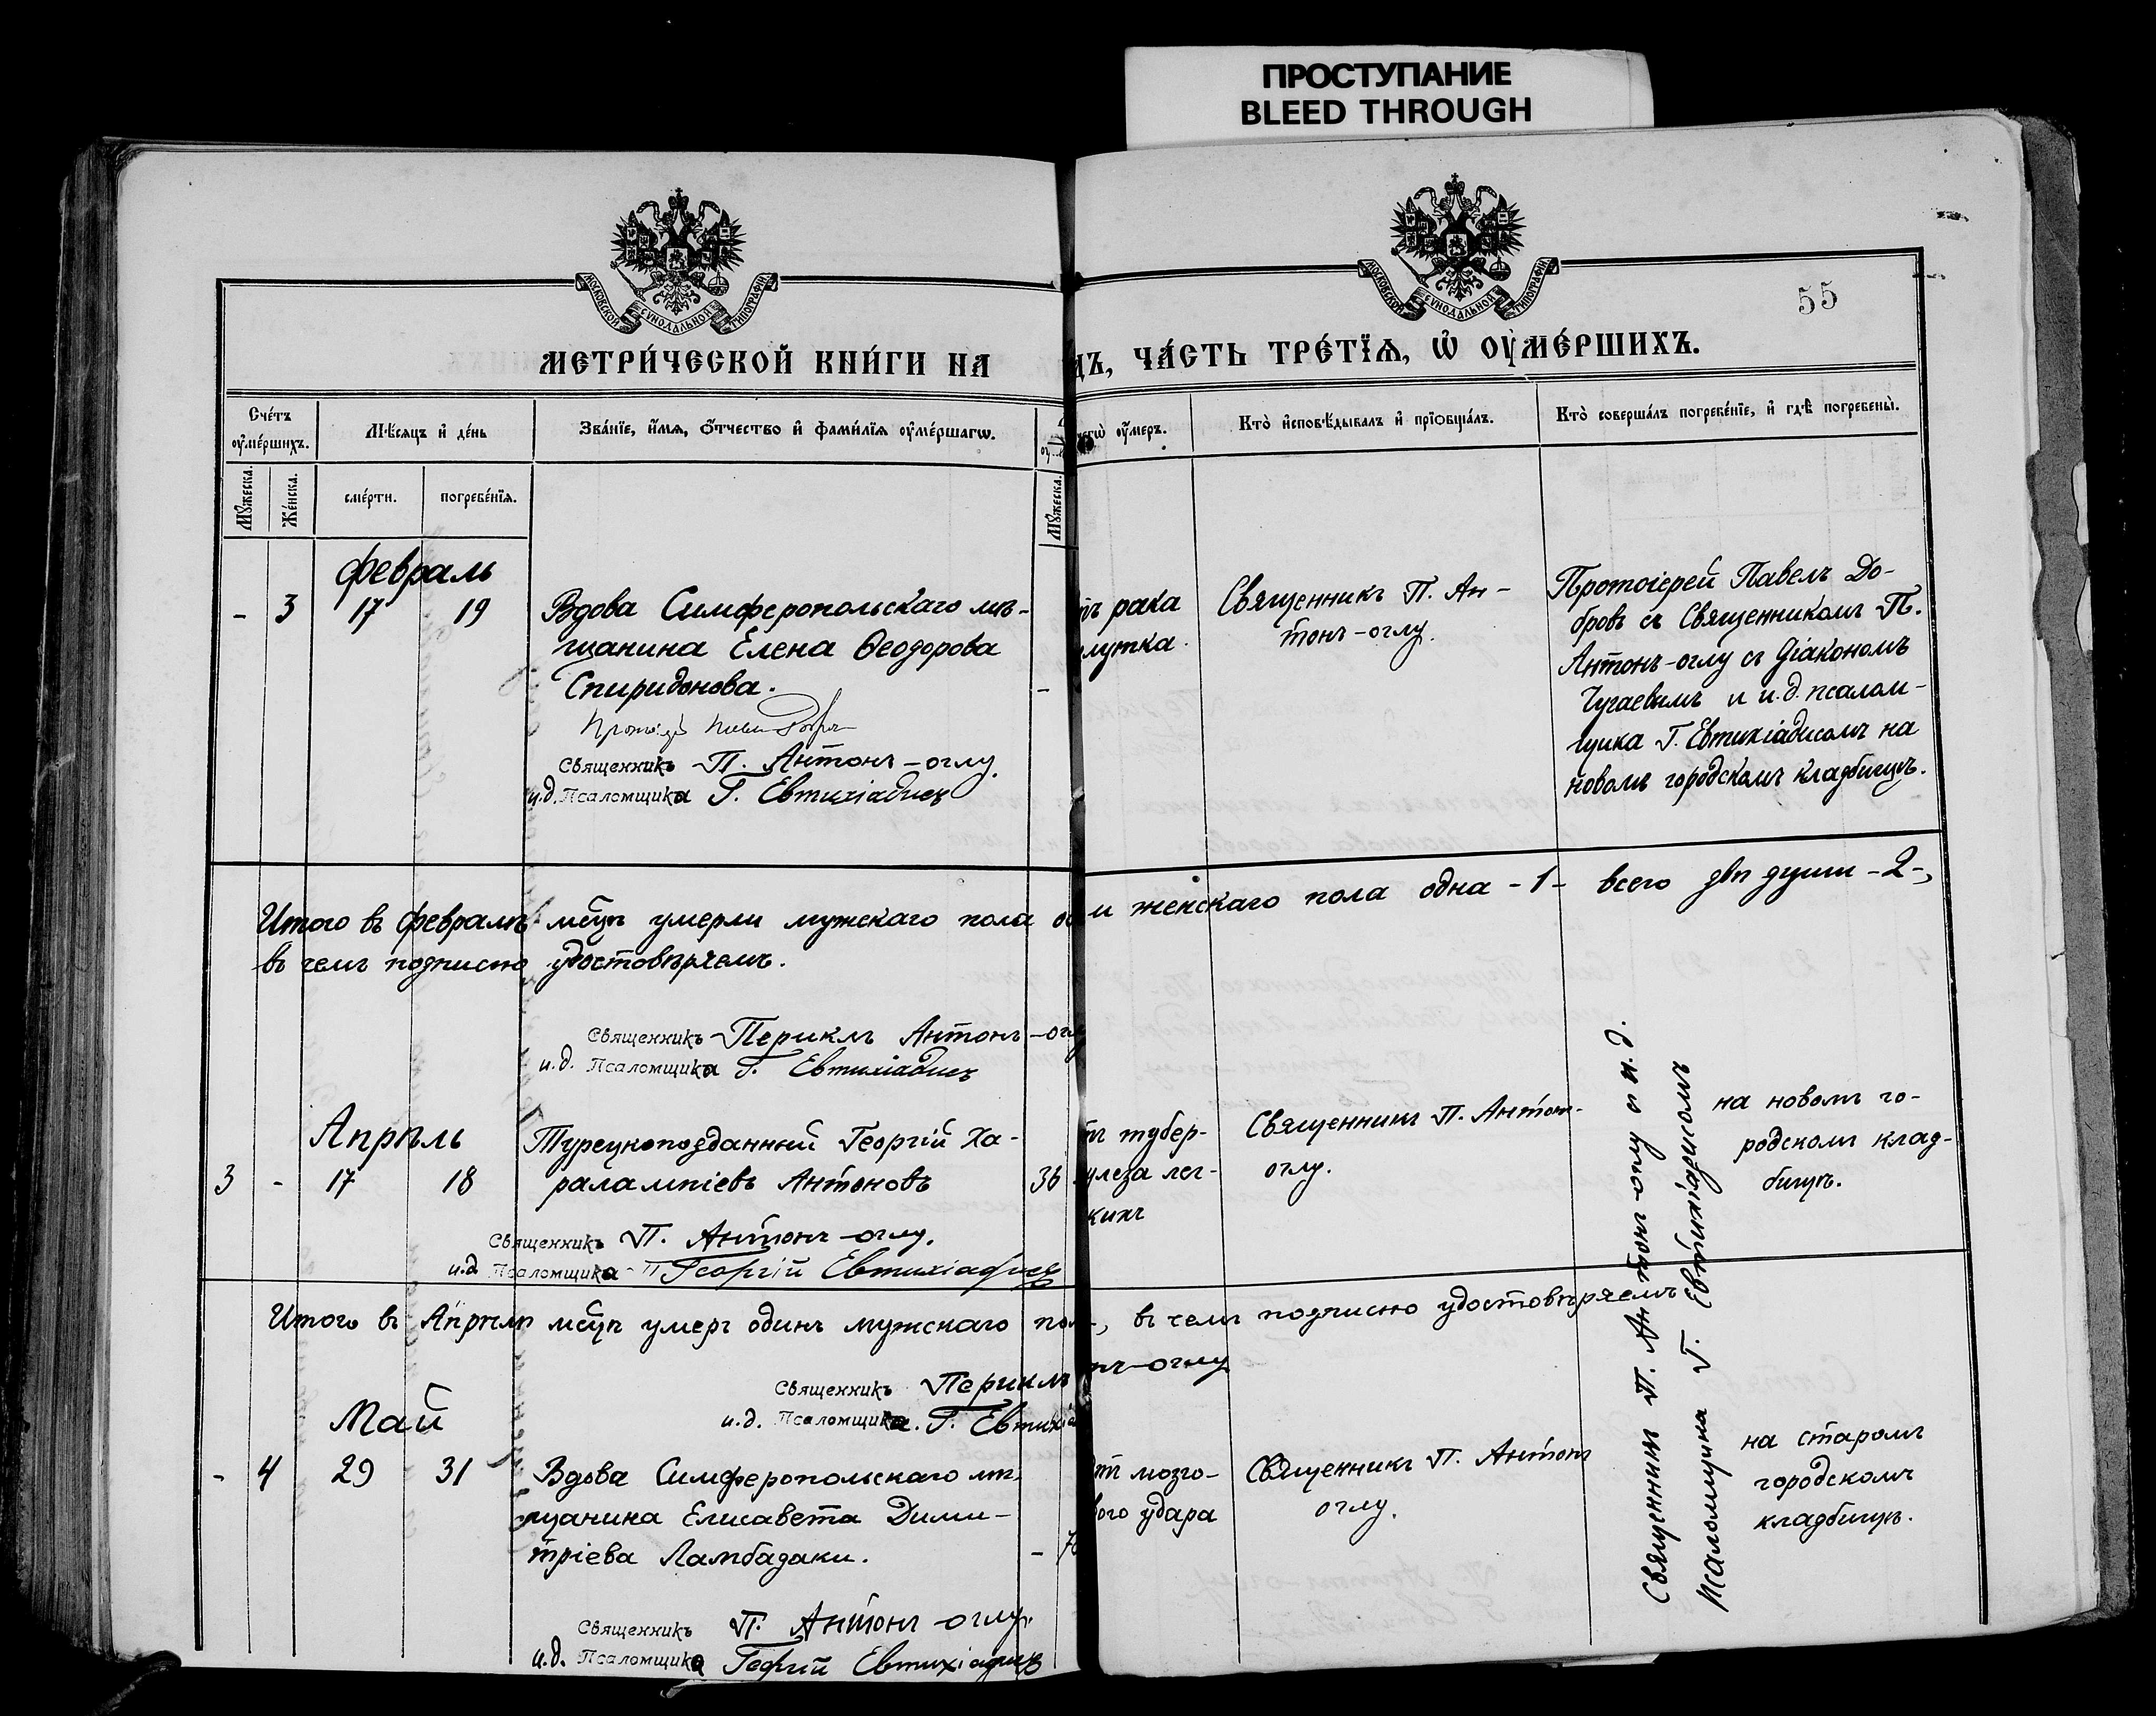 ПРОСТУПАНИЕ
BLEED THROUGH
МОСКОВСКОЙ СѴНОДАЛЬНОЙ ТИПОГРАФІИ
МОСКОВСКОЙ СѴНОДАЛЬНОЙ ТИПОГРАФІИ
55
МЕТРИ́ЧЕСКОЙ КНИ́ГИ НА
ДЪ, ЧА́СТЬ ТРЕ́ТЇѦ, Ѡ ОУМЕ́РШИХЪ.
Сче́тъ
оуме́ршихъ.
Мѣ́сяцъ и де́нь
Зва́нїе, и́мя, о́тчество и фами́лїя оуме́ршагѡ.
чегѡ̀ оу́меръ.
Кто̀ и҆сповѣ́дывалъ и҆ прїѻбща́лъ.
Кто̀ соверша́лъ погребе́нїе, и҆ гдѣ̀ погребены̀.
Му́жеска.
Же́нска.
сме́рти.
погребе́нїя.
Му́жеска.
Февраль
- 3 17 19
Вдова Симферопольскаго мѣ-
щанина Елена Ѳеодорова
Спиридонова.
-
Священникъ П. Антонъ-оглу.
и.д. Псаломщика Г. Евтихіадисъ
тъ рака
лутка.
Священникъ П. Ан-
тонъ-оглу.
Протоіерей Павелъ До-
бровъ съ Священникомъ П.
Антонъ-оглу съ Діакономъ
Чугаевымъ и и.д. псалом-
щика Г. Евтихіадисомъ на
новомъ городскомъ кладбищѣ.
Итого въ Февралѣ мсцѣ умерли мужскаго пола од
и женскаго пола одна -1- всего двѣ души -2-,
въ чемъ подписью удостовѣряемъ.
Священникъ Периклъ Антонъ-оглу
и.д. Псаломщика Г. Евтихіадисъ
Апрѣль
3 - 17 18
Турецкоподданный Георгій Ха-
ралампіевъ Антоновъ
36
Священникъ П. Антонъ-оглу.
и.д. Псаломщика Георгій Евтихіадисъ
тъ тубер-
улеза лег-
кихъ
Священникъ П. Антон-
оглу.
на новомъ го-
родскомъ клад-
бищѣ.
Итого въ Апрѣлѣ мсцѣ умеръ одинъ мужскаго пол
, въ чемъ подписью удостовѣряемъ
Священникъ Периклъ
нъ-оглу
и.д. Псаломщика. Г. Евтихіа
Май
- 4 29 31
Вдова Симферопольскаго мѣ-
щанина Елисавета Дими-
тріева Ламбадаки.
-
Священникъ П. Антонъ-оглу.
и.д. Псаломщика Георгій Евтихіадисъ
тъ мозго-
вого удара
Священникъ П. Антонъ
оглу.
Священникъ П. Антонъ-оглу и и.д.
псаломщика Г. Евтихіадисомъ
на старомъ
городскомъ
кладбищѣ.